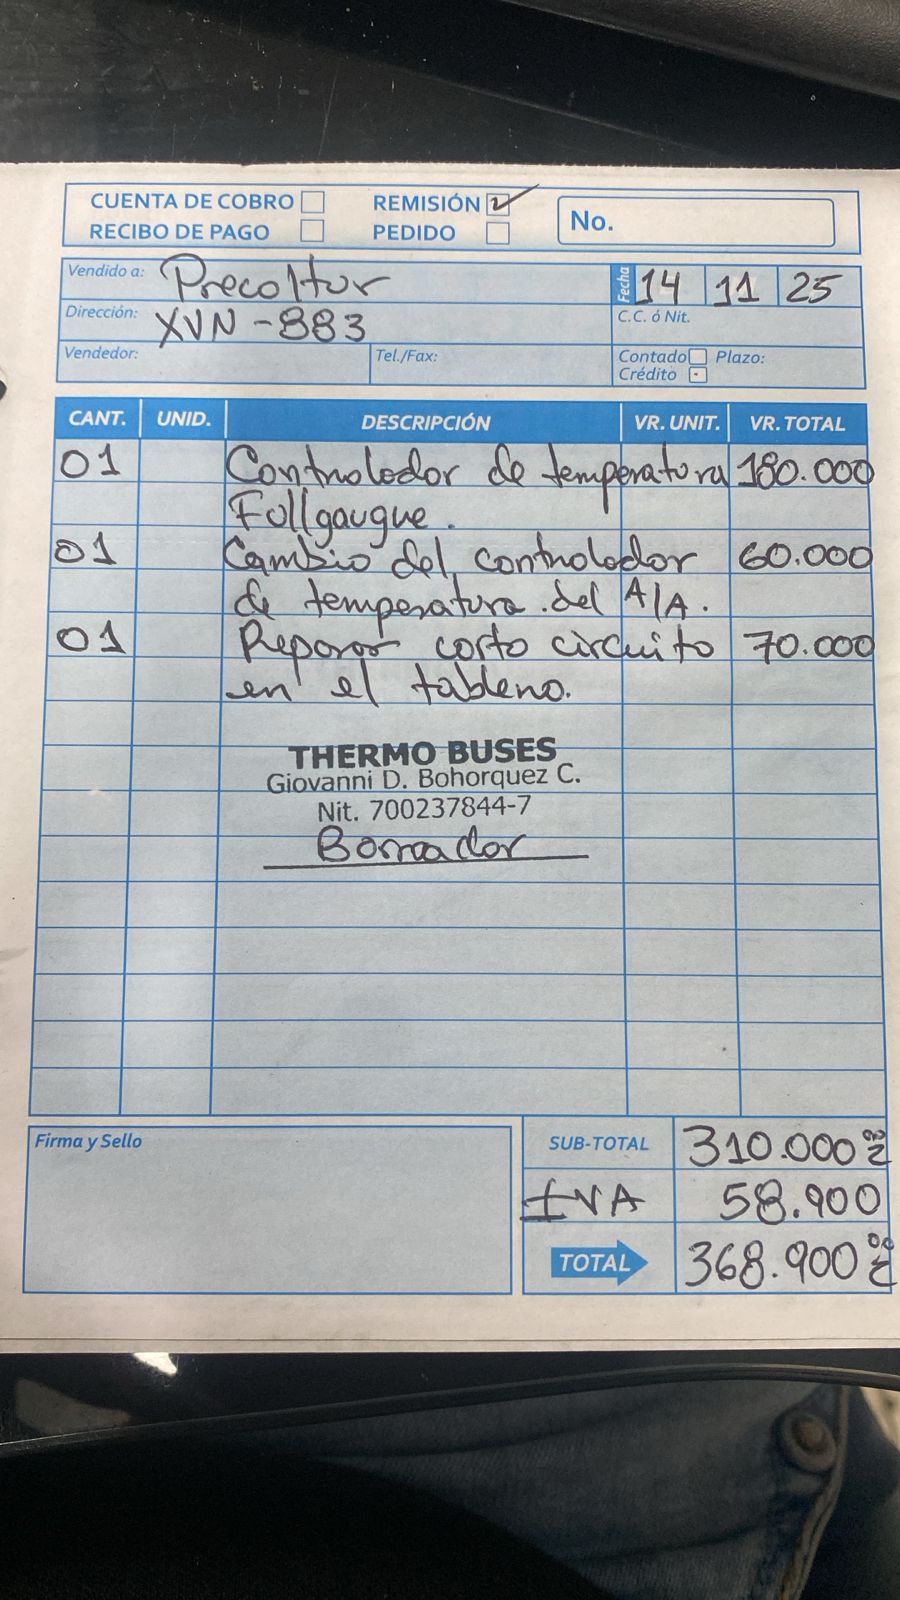 CUENTA DE COBRO REMISIÓN No.
RECIBO DE PAGO PEDIDO
Vendido a: Precoltur Fecha 14 11 25
Dirección: XVN-883 C.C. ó Nit.
Vendedor: Tel./Fax: Contado Plazo:
Crédito
CANT. UNID. DESCRIPCIÓN VR. UNIT. VR. TOTAL
01 Controlador de temperatura 180.000
Fullgaugue.
01 Cambio del controlador 60.000
de temperatura del A/A.
01 Reparar corto circuito 70.000
en el tablero.
THERMO BUSES
Giovanni D. Bohorquez C.
Nit. 700237844-7
Borrador
Firma y Sello
SUB-TOTAL 310.000
IVA 58.900
TOTAL 368.900